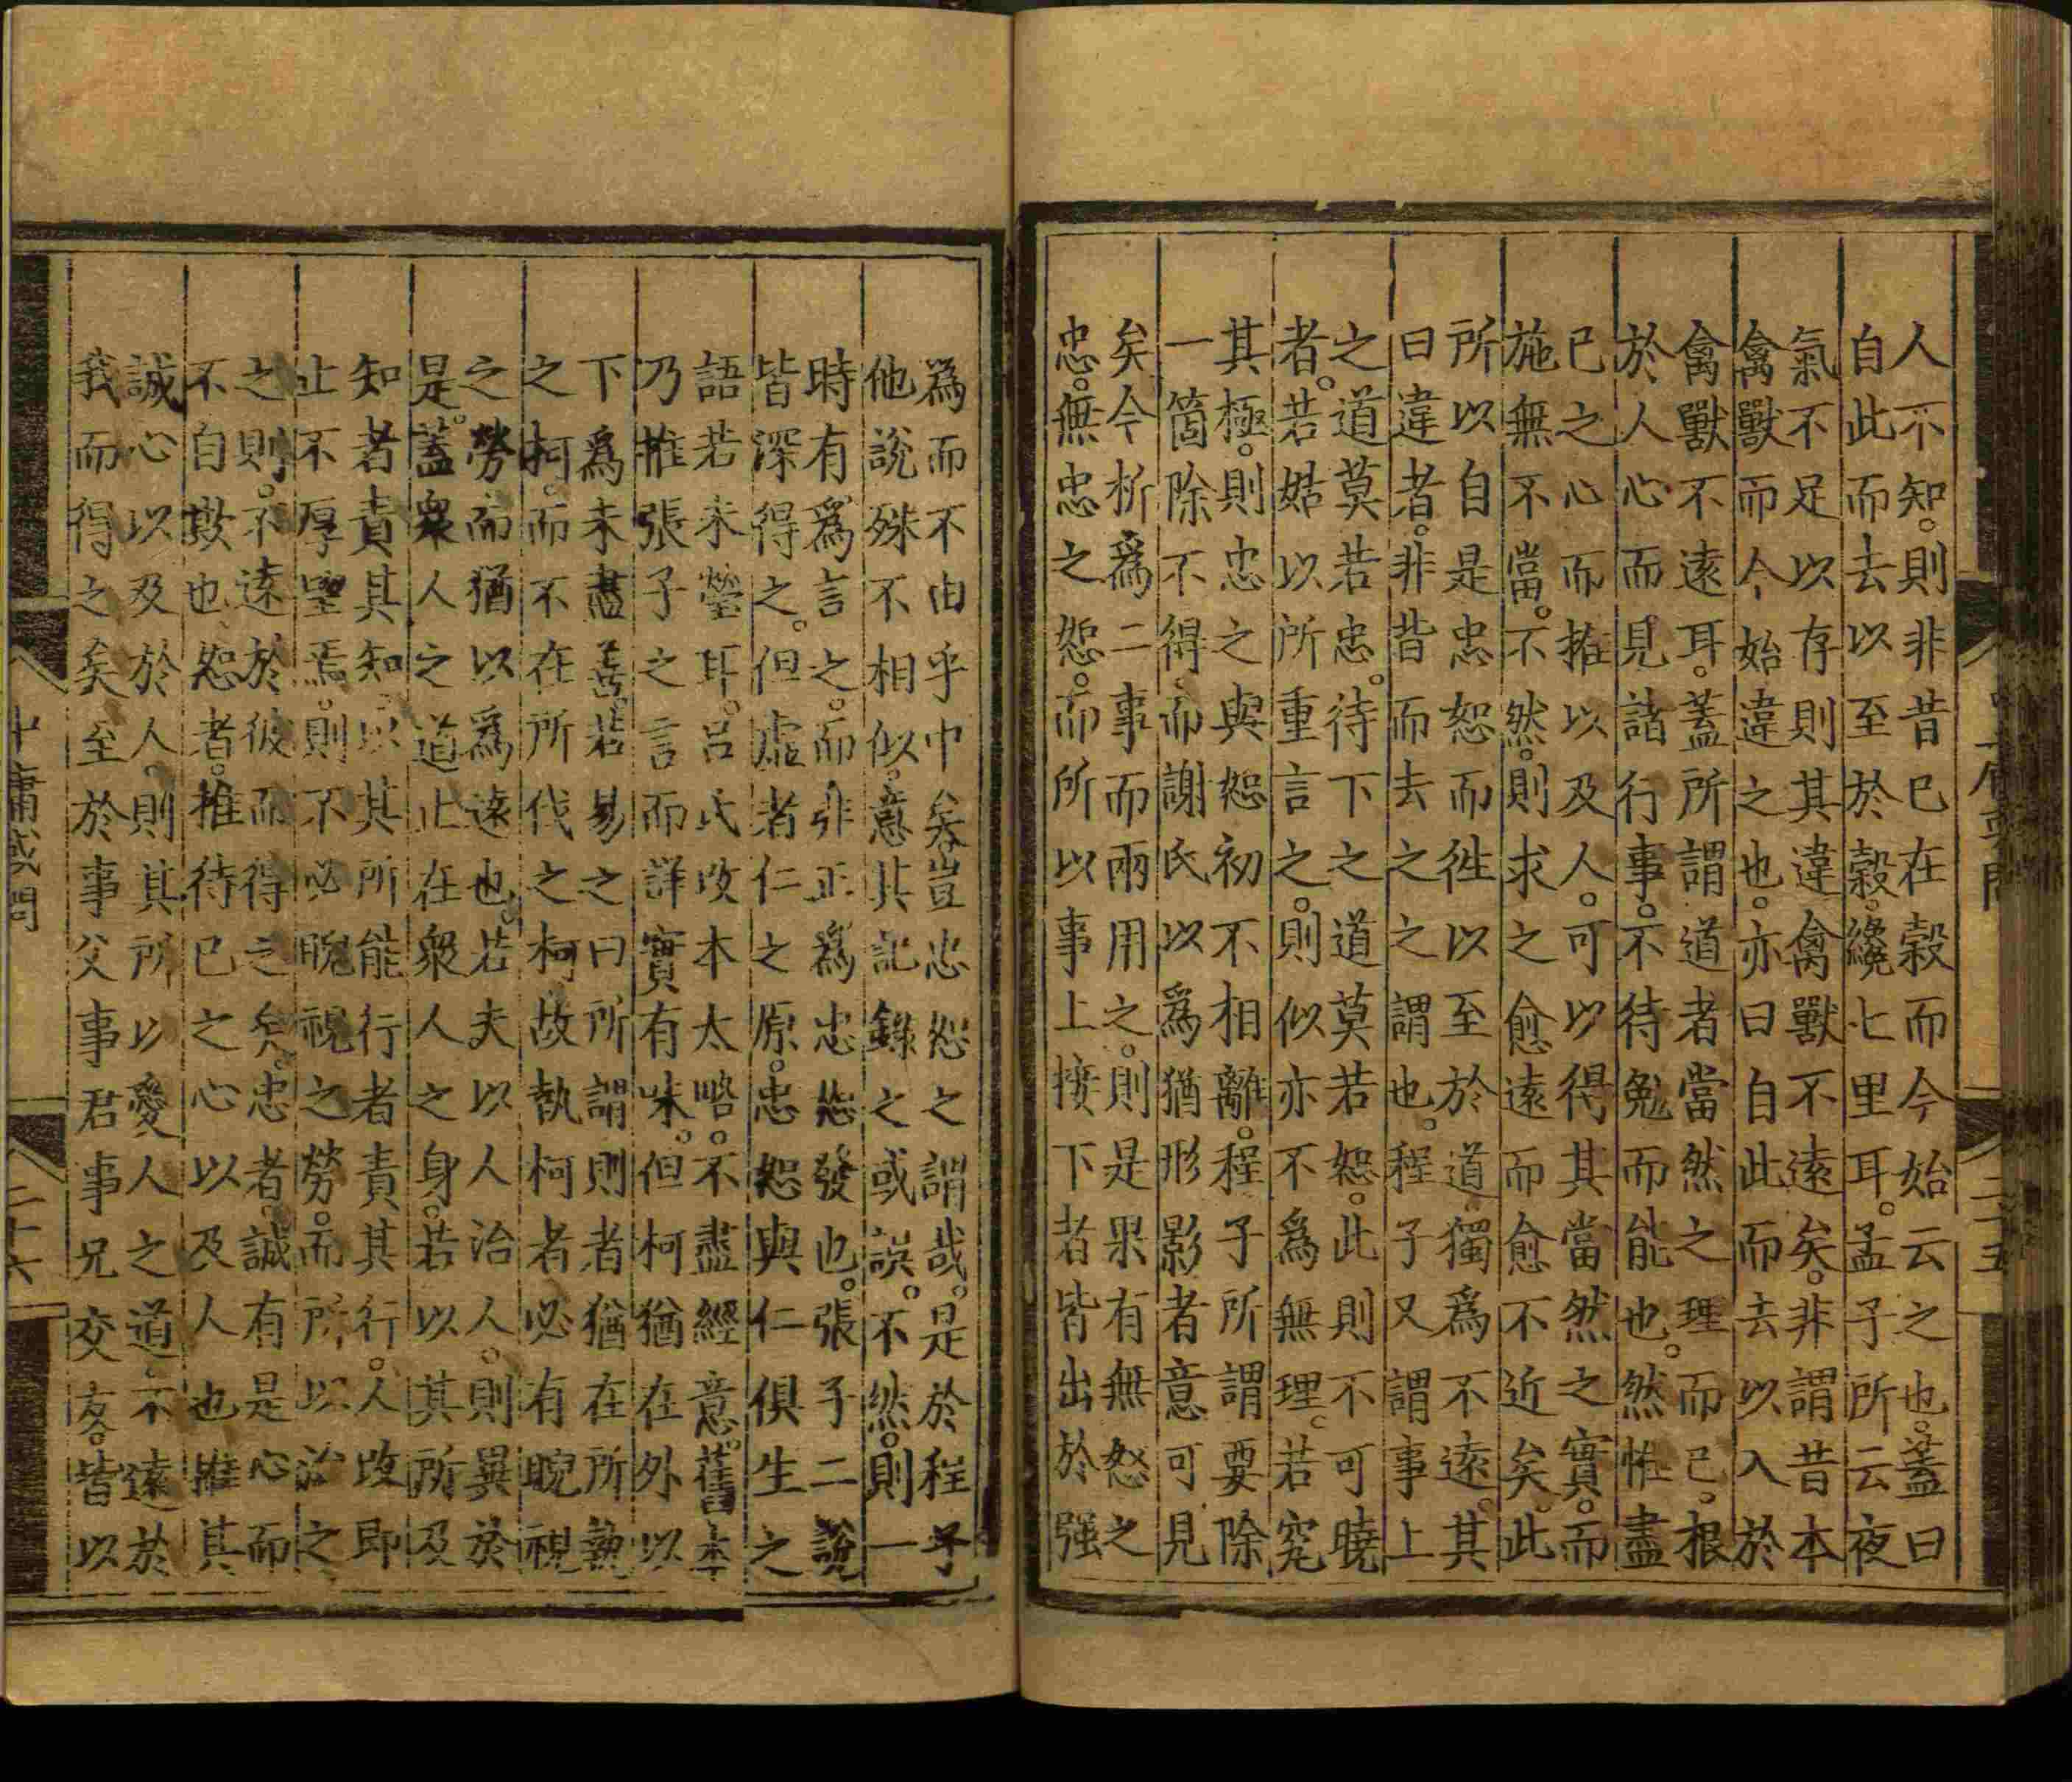 人不知。則非昔已在穀而今始云之也。蓋曰
自此而去以至於穀。纔七里耳。孟子所云夜
氣不足以存則其違禽獸不遠矣。非謂昔本
禽獸而今始違之也。亦曰自此而去以入於
禽獸不遠耳。蓋所謂道者當然之理而已。根
於人心而見諸行事。不待勉而能也。然惟盡
已之心而推以及人。可以得其當然之實。而
施無不當。不然。則求之愈遠而愈不近矣。此
所以自是忠恕而徃以至於道。獨爲不遠。其
曰違者。非昔而去之之謂也。程子又謂事上
之道莫若忠。待下之道莫若恕。此則不可曉
者。若姑以所重言之。則似亦不爲無理。若究
其極。則忠之與恕初不相離。程子所謂要除
一箇除不得。而謝氏以爲猶形影者意可見
矣今析爲二事而兩用之。則是果有無恕之
忠。無忠之恕。而所以事上接下者皆出於强
爲而不由乎中矣豈忠恕之謂哉。是於程子
他說殊不相似。意其記錄之或誤。不然。則一
時有爲言之。而非正爲忠恕發也。張子二說
皆深得之。但虛者仁之原。忠恕與仁俱生之
語若未瑩耳。呂氏改本太略。不盡經意。舊本
乃推張子之言而詳實有味。但柯猶在外以
下爲未盡善。若易之曰所謂則者猶在所執
之柯。而不在所伐之柯故執柯者必有睨視
之勞。而猶以爲遠也。若夫以人治人。則異於
是。蓋衆人之道止在衆人之身。若以其所及
知者責其知。以其所能行者責其行。人改即
止不厚望焉。則不必睨視之勞。而所以治之
之則。不遠於彼而得之矣。忠者。誠有是心而
不自欺也。恕者。推待已之心以及人也推其
誠心以及於人。則其所以愛人之道不遠於
我而得之矣至於事父事君事兄交友。皆以
中庸或問
二十五
中庸或問
二十六